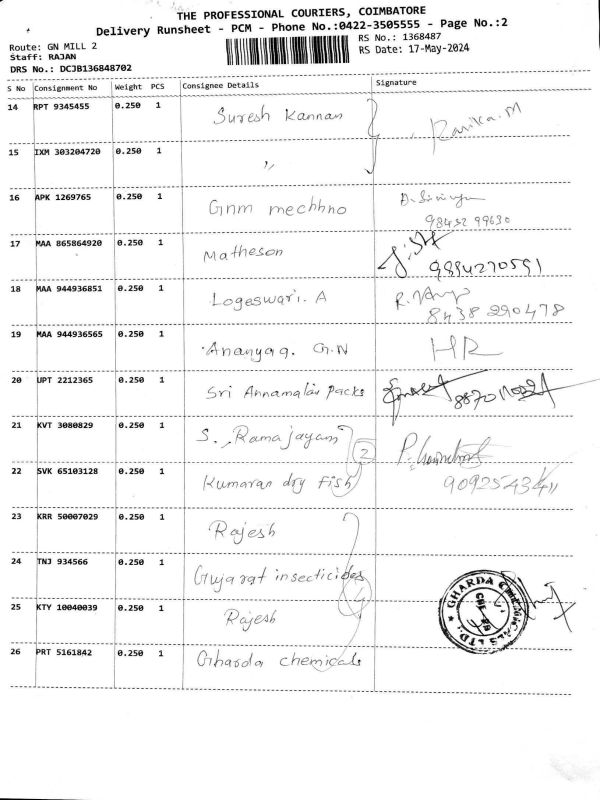 THE PROFESSIONAL COURIERS, COIMBATORE
Delivery Runsheet - PCM - Phone No.:0422-3505555 - Page No.:2
Route: GN MILL 2 RS No.: 1368487
Staff: RAJAN RS Date: 17-May-2024
DRS No.: DCJB136848702
S No Consignment No Weight PCS Consignee Details Signature
14 RPT 9345455 0.250 1 Suresh Kannan
15 IXM 303204720 0.250 1 ,,
16 APK 1269765 0.250 1 Gnm mechhno
98432 99630
17 MAA 865864920 0.250 1 Matheson
9894270591
18 MAA 944936851 0.250 1 Logeswari. A
8438 290478
19 MAA 944936565 0.250 1 Ananyaa. G.N HR
20 UPT 2212365 0.250 1 Sri Annamalai Packs
21 KVT 3080829 0.250 1 S. Ramajayam
2
22 SVK 65103128 0.250 1 Kumaran dry Fish
23 KRR 50007029 0.250 1 Rajesh
24 TNJ 934566 0.250 1 Gujarat insecticides
4
25 KTY 10040039 0.250 1 Rajesh
26 PRT 5161842 0.250 1 Gharda chemicals
GHARDA CHEMICALS LTD.